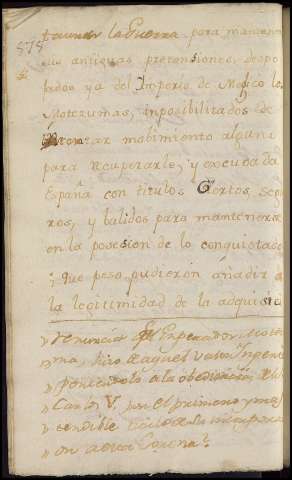 575
la Guerra para mantener
sus antiguas pretensiones, despo
jados ya del Imperio de Mexico los
Motezumas, inposibilitados de
intentar mobimiento alguno
para recuperarle, y escudada
España con titulos ciertos, segu
ros, y balidos para mantenerse
en la posesion de lo conquistado
¿Que peso pudieron añadir a
la legitimidad de la adquisi
" renuncia q.e el Emperador Mote
" ma, hizo de aquel vasto Ymperio
" poniendolo a la obediencia de
" Carlos V. por el primero y mas
" 
" en aquella Corona?